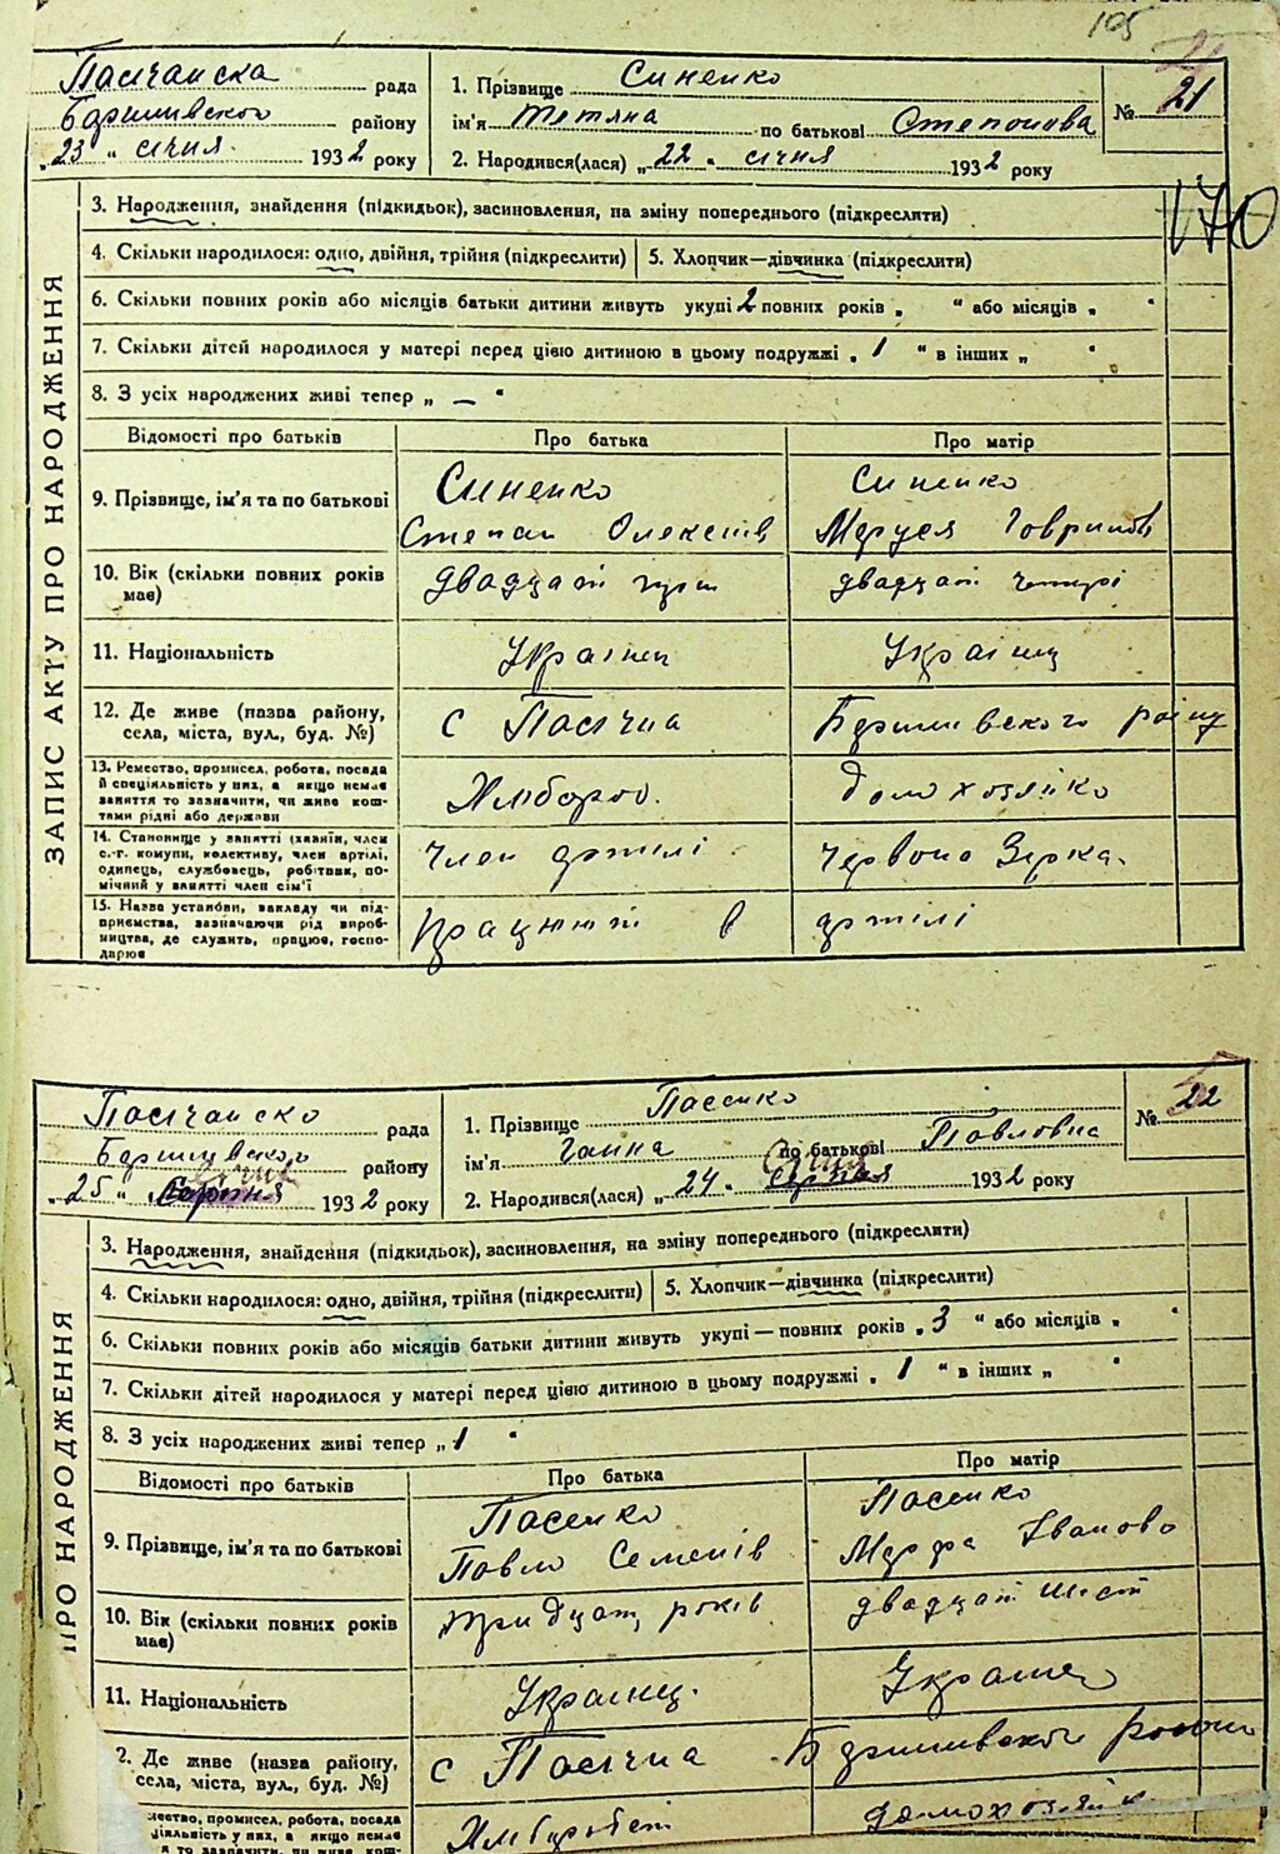 105
Пасічанска рада
Баришивского району
„23 “ січня 1932 року
1. Прізвище Синенко
ім’я Тетяна по батькові Степанова
2. Народився(лася) „22 “ січня 1932 року
№ 21
170
ЗАПИС АКТУ ПРО НАРОДЖЕННЯ
3. Народження, знайдення (підкидьок), засиновлення, на зміну попереднього (підкреслити)
4. Скільки народилося: одно, двійня, трійня (підкреслити)
5. Хлопчик—дівчинка (підкреслити)
6. Скільки повних років або місяців батьки дитини живуть укупі 2 повних років „ “ або місяців „ “
7. Скільки дітей народилося у матері перед цією дитиною в цьому подружжі „ 1 “ в інших „ “
8. З усіх народжених живі тепер „ — “
Відомості про батьків Про батька Про матір
9. Прізвище, ім’я та по батькові
Синенко
Степан
Синенко
Маруся
10. Вік (скільки повних років має)
двадцат
двадцат чотирі
11. Національність
Українец
Українц
12. Де живе (назва району, села, міста, вул., буд. №)
с Пасічна Баришивского раіну
13. Ремество, промисел, робота, посада й спеціяльність у них, а якщо немає заняття то зазначити, чи живе коштами рідні або держави
Хлібороб.
домохозяйко
14. Становище у занятті (хазяїн, член с.-г. комуни, колективу, член артілі, одинець, службовець, робітник, помічний у занятті член сім’ї
Член артілі Червона Зірка.
15. Назва установи, закладу чи підприємства, зазначаючи рід виробництва, де служить, працює, господарює
Працюют в артілі
Пасічанско рада
Баришивского району
„25 “ січня 1932 року
1. Прізвище Пасенко
ім’я Ганна по батькові Павловна
2. Народився(лася) „24 “ Січня Серпня 1932 року
№ 22
ПРО НАРОДЖЕННЯ
3. Народження, знайдення (підкидьок), засиновлення, на зміну попереднього (підкреслити)
4. Скільки народилося: одно, двійня, трійня (підкреслити)
5. Хлопчик—дівчинка (підкреслити)
6. Скільки повних років або місяців батьки дитини живуть укупі — повних років „ 3 “ або місяців „ “
7. Скільки дітей народилося у матері перед цією дитиною в цьому подружжі „ 1 “ в інших „ “
8. З усіх народжених живі тепер „ 1 “
Відомості про батьків Про батька Про матір
9. Прізвище, ім’я та по батькові
Пасенко
Павло Семенів
Пасенко
Марфа Іванова
10. Вік (скільки повних років має)
тридцат років
двадцат шест
11. Національність
Українец.
Українец
2. Де живе (назва району, села, міста, вул., буд. №)
с Пасічна Баришивского району
мество, промисел, робота, посада
діяльність у них, а якщо немає
я то зазначити, чи живе кош-
Хлібороб
домохозяйк